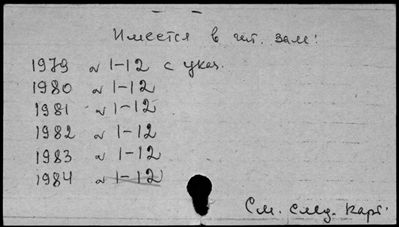 Имеется в чит. зале:
1979 № 1-12 с указ.
1980 № 1-12
1981 № 1-12
1982 № 1-12
1983 № 1-12
1984 № 1-12
См. след. карт.